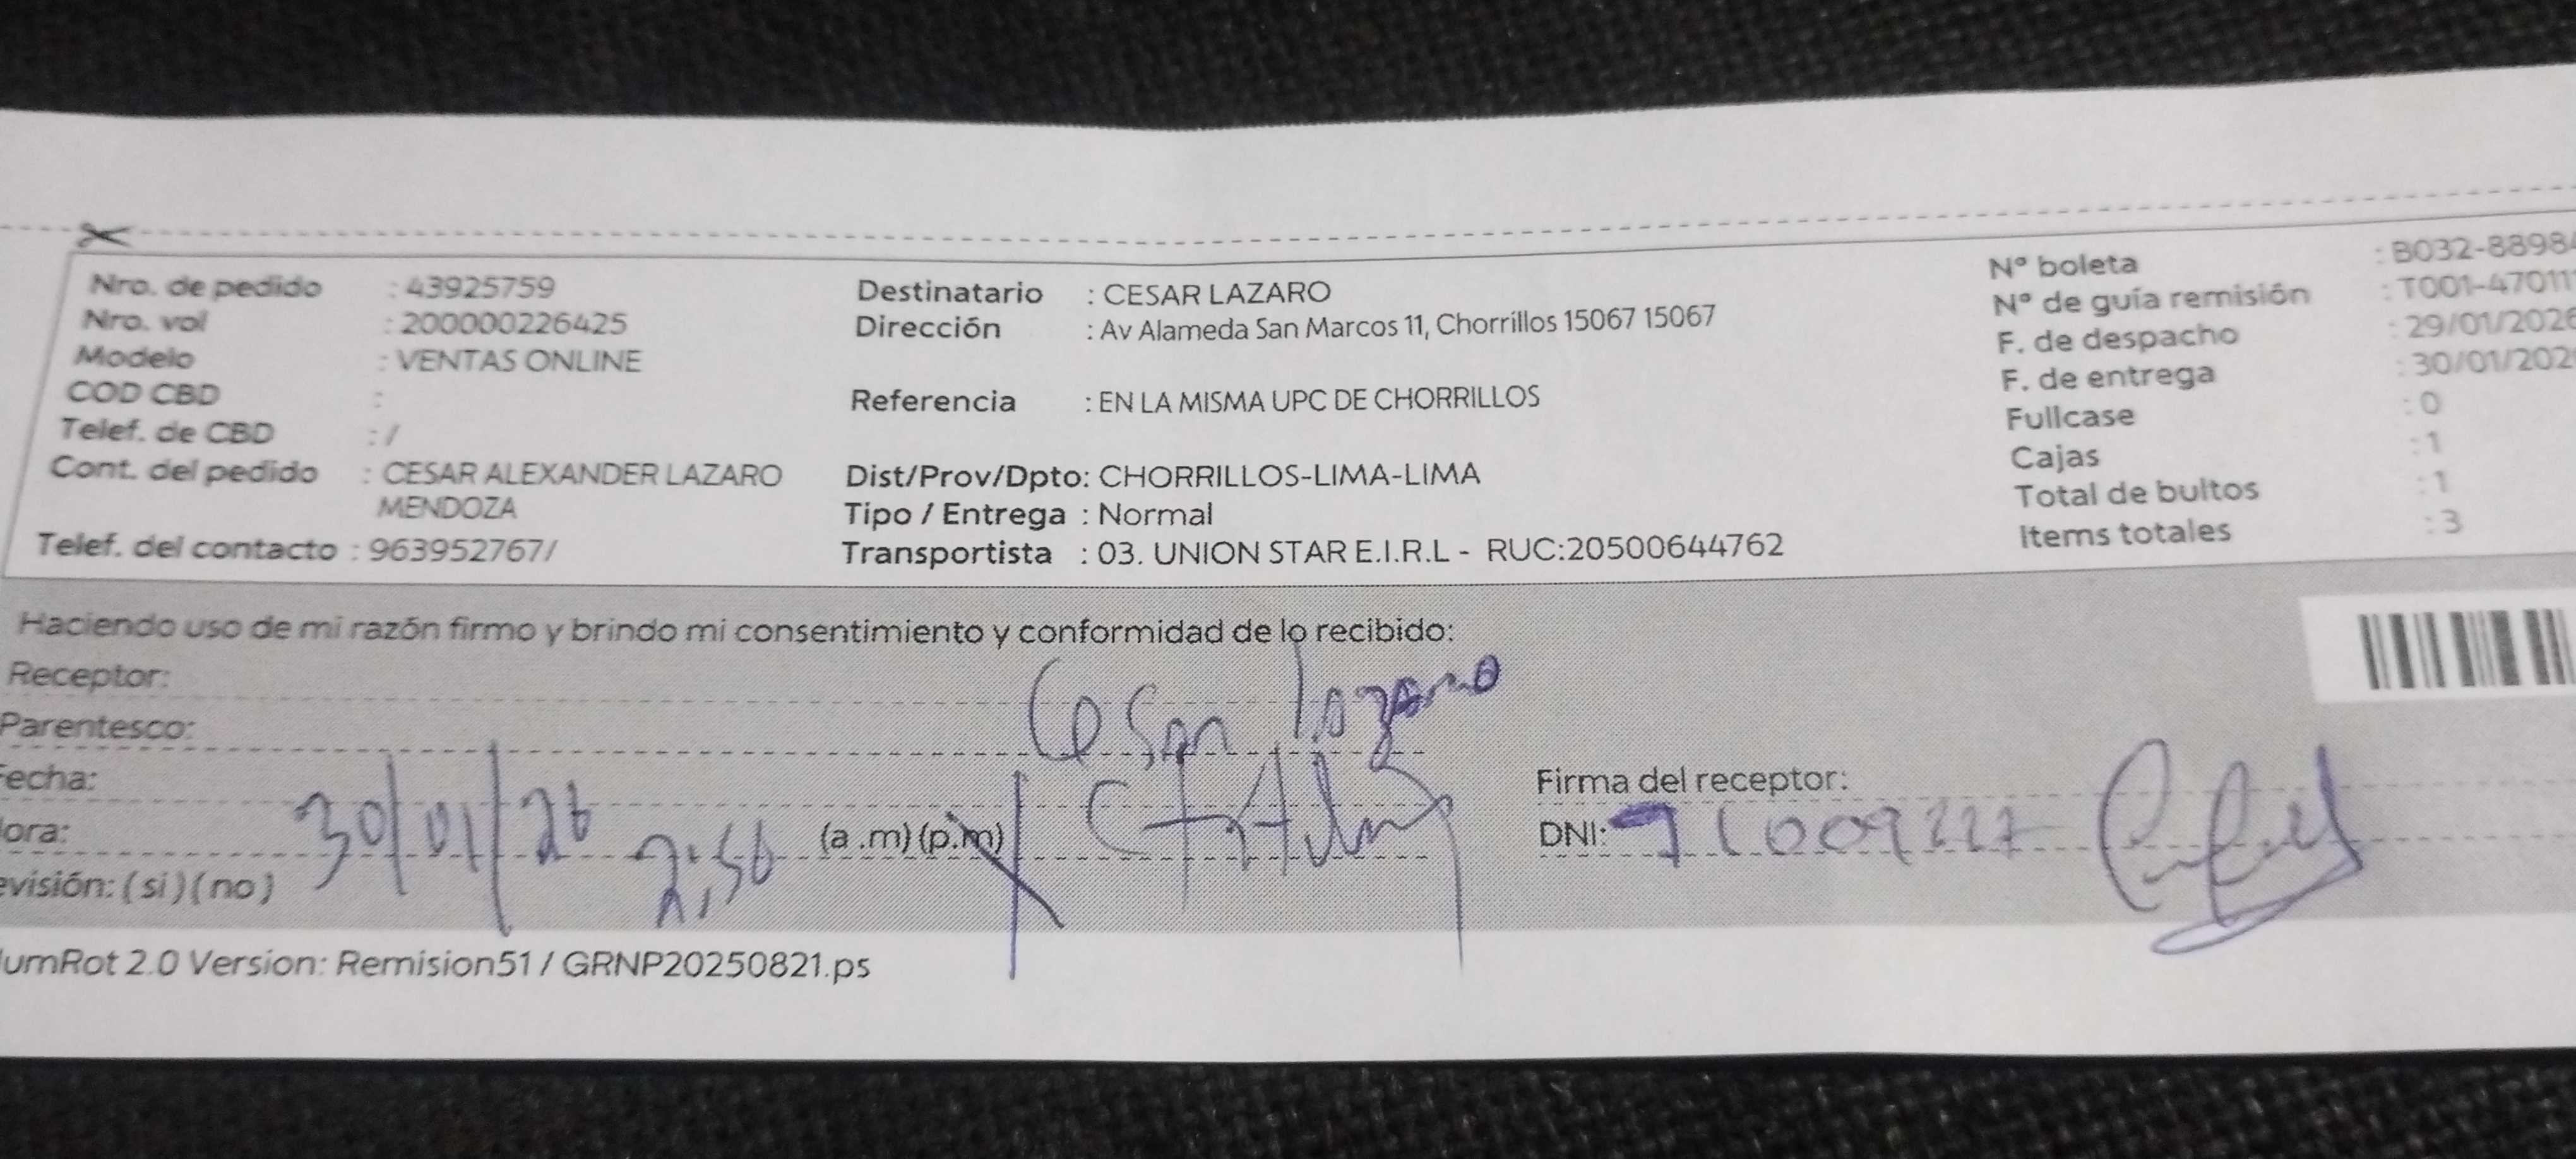 Nro. de pedido : 43925759
Nro. vol : 200000226425
Modelo : VENTAS ONLINE
COD CBD :
Telef. de CBD : /
Cont. del pedido : CESAR ALEXANDER LAZARO
MENDOZA
Telef. del contacto : 963952767/
Destinatario : CESAR LAZARO
Dirección : Av Alameda San Marcos 11, Chorrillos 15067 15067
Referencia : EN LA MISMA UPC DE CHORRILLOS
Dist/Prov/Dpto: CHORRILLOS-LIMA-LIMA
Tipo / Entrega : Normal
Transportista : 03. UNION STAR E.I.R.L - RUC:20500644762
N° boleta : B032-8898
N° de guía remisión : T001-47011
F. de despacho : 29/01/202
F. de entrega : 30/01/202
Fullcase : 0
Cajas : 1
Total de bultos : 1
Items totales : 3
Haciendo uso de mi razón firmo y brindo mi consentimiento y conformidad de lo recibido:
Receptor: Cesar Lozano
Parentesco:
Fecha: 30/01/26
ora: 2:56 (a .m) (p.m)
evisión: ( si ) ( no )
Firma del receptor:
DNI: 71009227
umRot 2.0 Version: Remision51 / GRNP20250821.ps